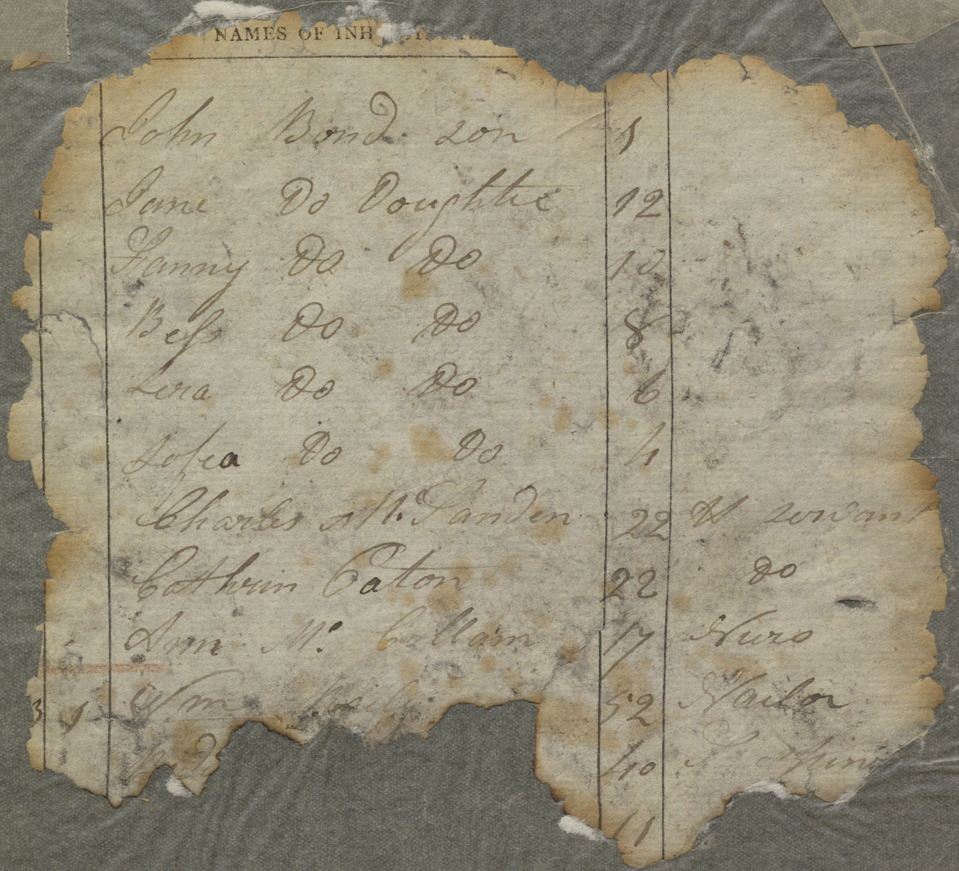 NAMES OF INH
John Bond son 1
Jane Do Doughter 12
Fanny Do Do 10
Bess Do Do 8
Sera Do Do 6
Sofea Do Do 4
Charles Mc. Fanden 22 H servant
Cathrin Eaton 22 Do
Ann Mc. Collam 17 Nurs
3 1 Wm 52 Nailor
40
11